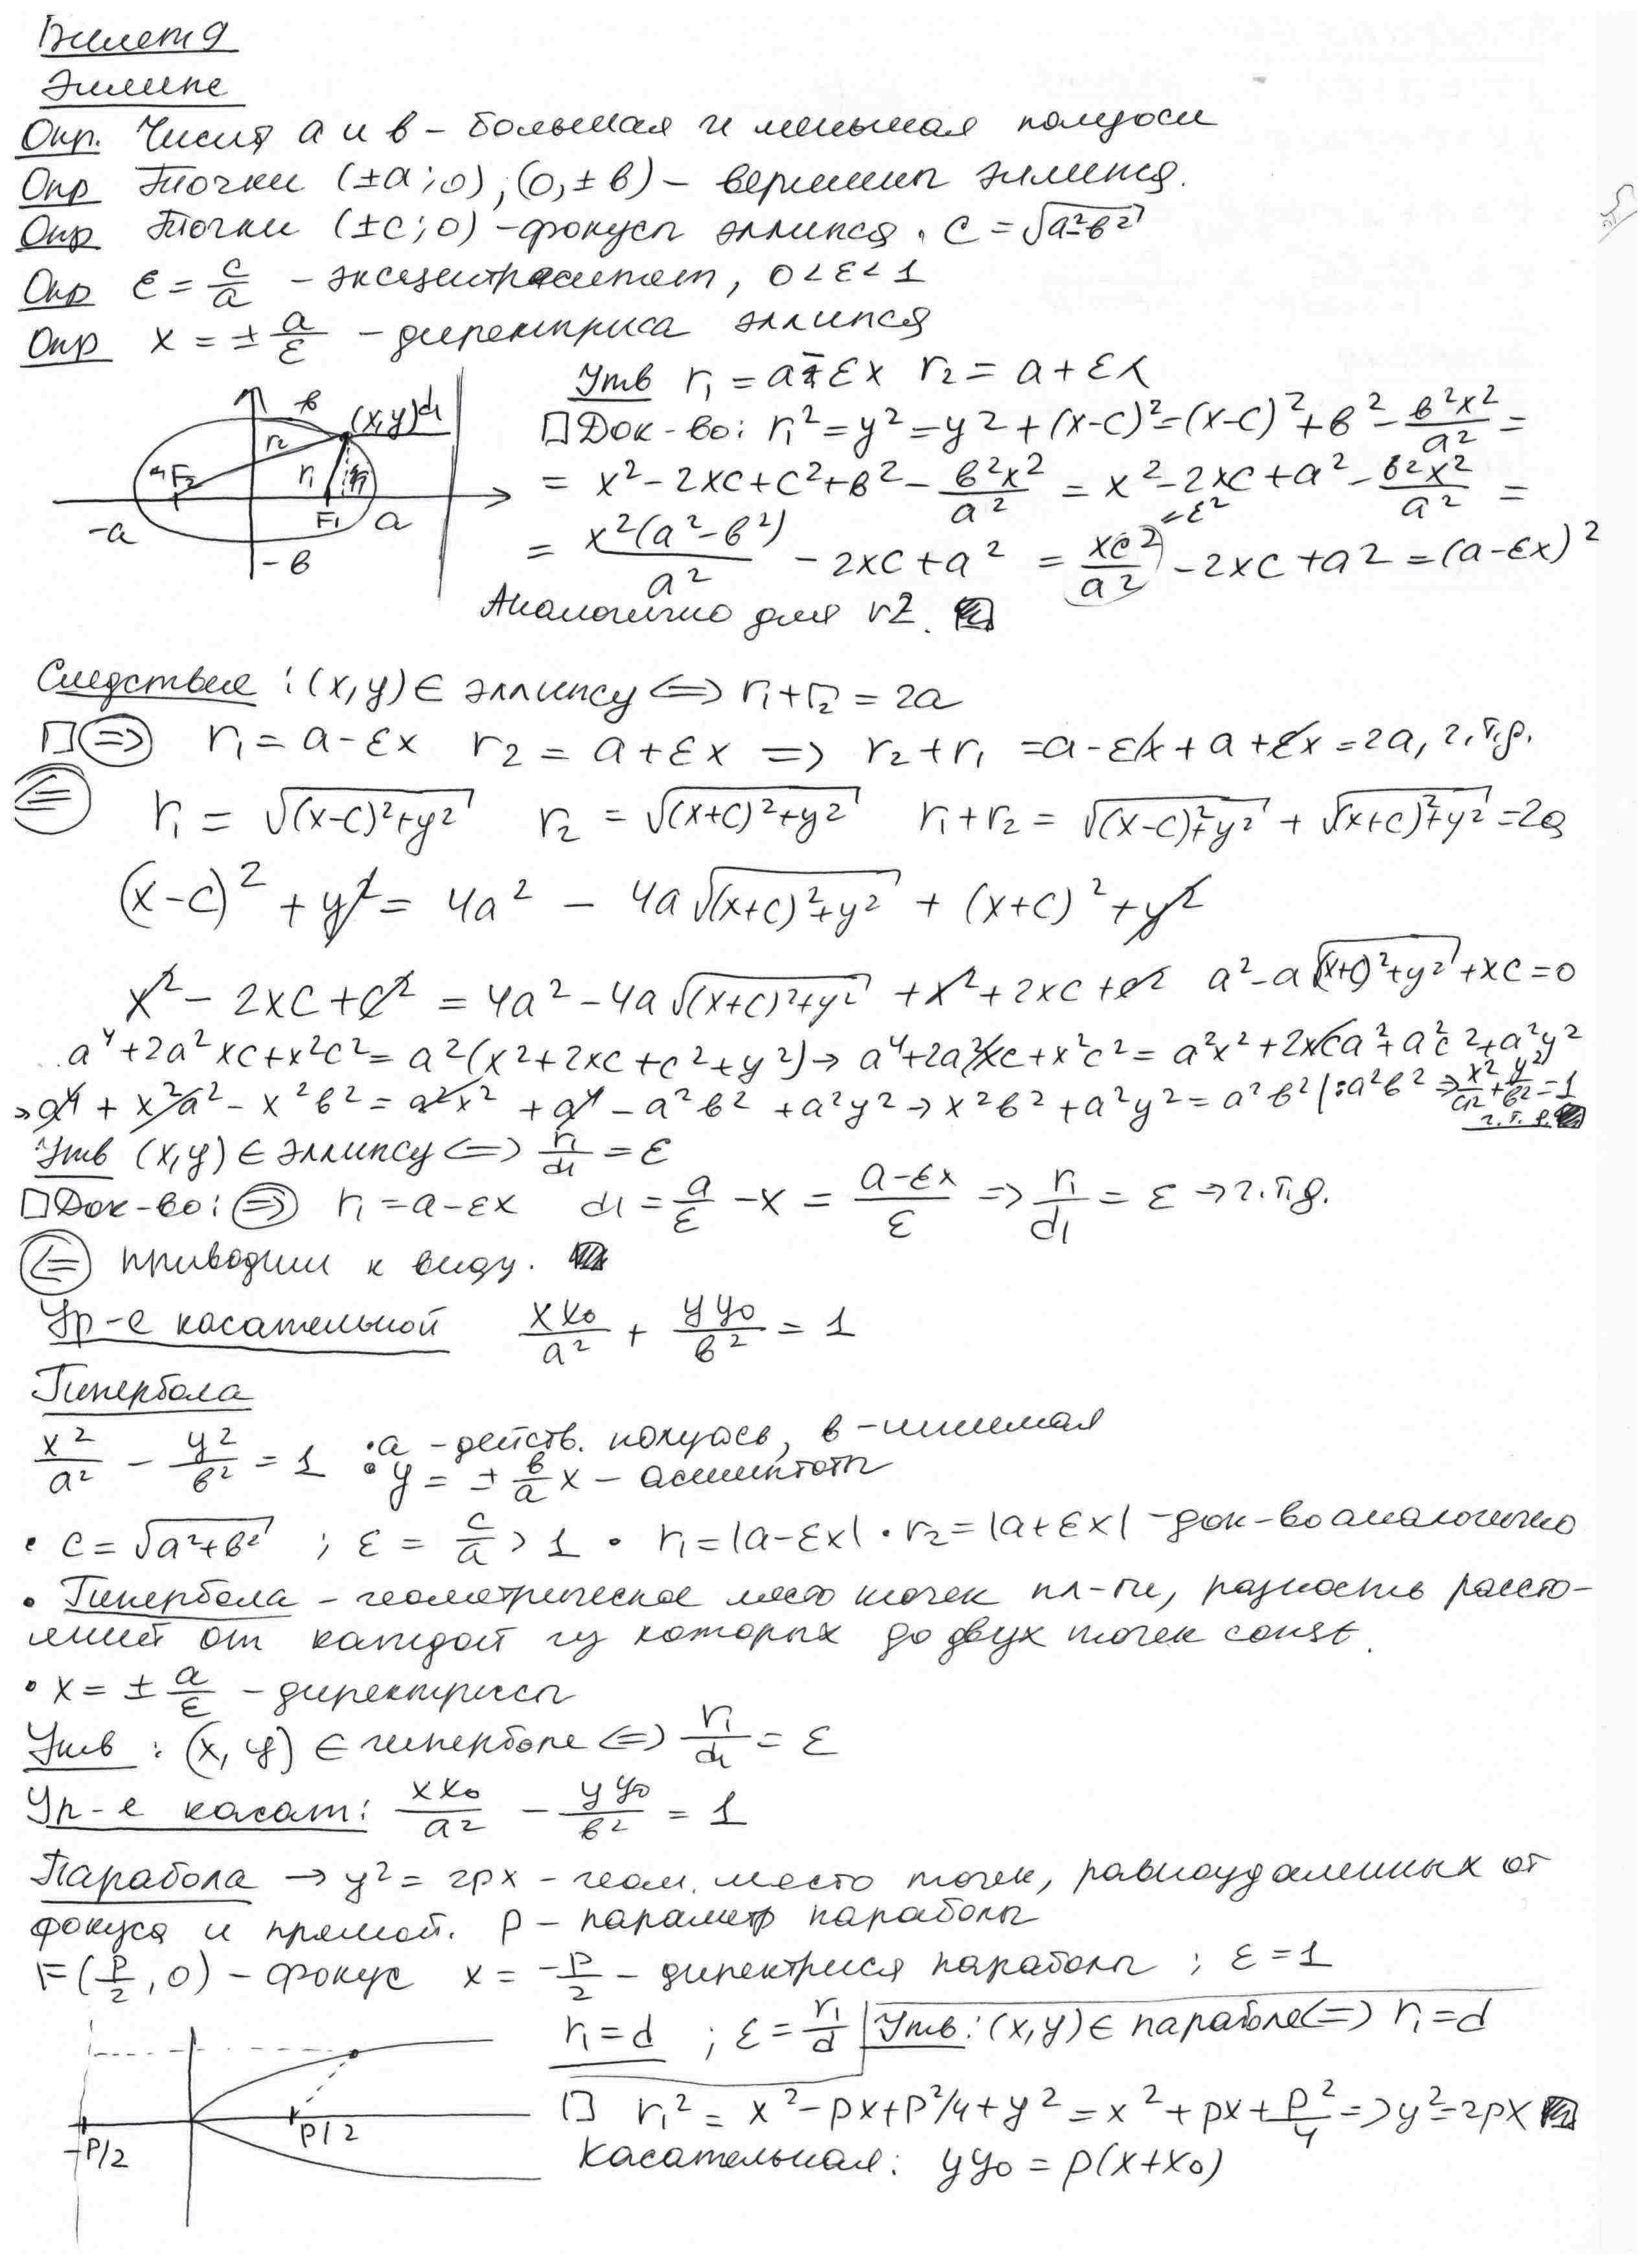 Билет 9
Эллипс
Опр. Числа a и b – большая и меньшая полуоси
Опр Точки (±a; 0), (0, ±b) – вершины эллипса.
Опр Точки (±c; 0) – фокусы эллипса. c = √(a²-b²)
Опр ε = c/a – эксцентриситет, 0 < ε < 1
Опр x = ± a/ε – директриса эллипса
Утв r₁ = a - εx r₂ = a + εx
b (x,y) d₁
r₂ r₁
F₂ F₁
-a a
-b
□ Док-во: r₁² = y² = y² + (x-c)² = (x-c)² + b² - b²x²/a² =
= x² - 2xc + c² + b² - b²x²/a² = x² - 2xc + a² - b²x²/a² =
= x²(a²-b²)/a² - 2xc + a² = xc²/a² - 2xc + a² = (a-εx)²
=ε²
Аналогично для r2. ■
Следствие: (x,y) ∈ эллипсу <=> r₁ + r₂ = 2a
□ (=>) r₁ = a - εx r₂ = a + εx => r₂ + r₁ = a - εx + a + εx = 2a, ч.т.д.
(<=) r₁ = √((x-c)²+y²) r₂ = √((x+c)²+y²) r₁ + r₂ = √((x-c)²+y²) + √((x+c)²+y²) = 2a
(x-c)² + y² = 4a² - 4a√((x+c)²+y²) + (x+c)² + y²
x² - 2xc + c² = 4a² - 4a√((x+c)²+y²) + x² + 2xc + c² a² - a√((x+c)²+y²) + xc = 0
a⁴ + 2a²xc + x²c² = a²(x² + 2xc + c² + y²) → a⁴ + 2a²xc + x²c² = a²x² + 2xca² + a²c² + a²y²
→ a⁴ + x²a² - x²b² = a²x² + a⁴ - a²b² + a²y² → x²b² + a²y² = a²b² |: a²b² => x²/a² + y²/b² = 1
ч.т.д. ■
Утв (x,y) ∈ эллипсу <=> r₁/d₁ = ε
□ Док-во: (=>) r₁ = a - εx d₁ = a/ε - x = (a-εx)/ε => r₁/d₁ = ε → ч.т.д.
(<=) приводим к виду. ■
Ур-е касательной xx₀/a² + yy₀/b² = 1
Гипербола
x²/a² - y²/b² = 1 • a – действ. полуось, b – мнимая
• y = ± b/a x – асимптоты
• c = √(a²+b²) ; ε = c/a > 1 • r₁ = |a-εx| • r₂ = |a+εx| – док-во аналогично
• Гипербола – геометрическое место точек пл-ти, разность рассто-
яний от каждой из которых до двух точек const.
• x = ± a/ε – директрисы
Утв : (x,y) ∈ гиперболе <=> r₁/d₁ = ε
Ур-е касат: xx₀/a² - yy₀/b² = 1
Парабола → y² = 2px – геом. место точек, равноудаленных от
фокуса и прямой. p – параметр параболы
F(p/2, 0) – фокус x = -p/2 – директриса параболы ; ε = 1
r₁ = d ; ε = r₁/d Утв: (x,y) ∈ параболе <=> r₁ = d
-p/2 p/2
□ r₁² = x² - px + p²/4 + y² = x² + px + p²/4 => y² = 2px ■
касательная: yy₀ = p(x+x₀)